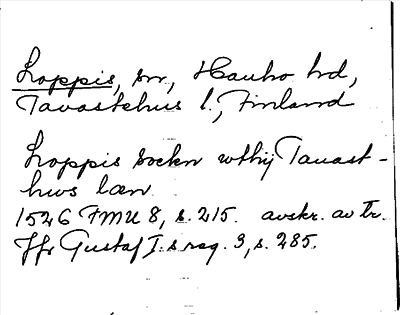 Loppis, sn, Hauho hd,
Tavastehus l., Finland
Loppis sockn wthij Tauast-
hws læn
1526 FMU 8, s. 215. avskr. av tr.
Jfr Gustaf I:s reg. 3, s. 285.